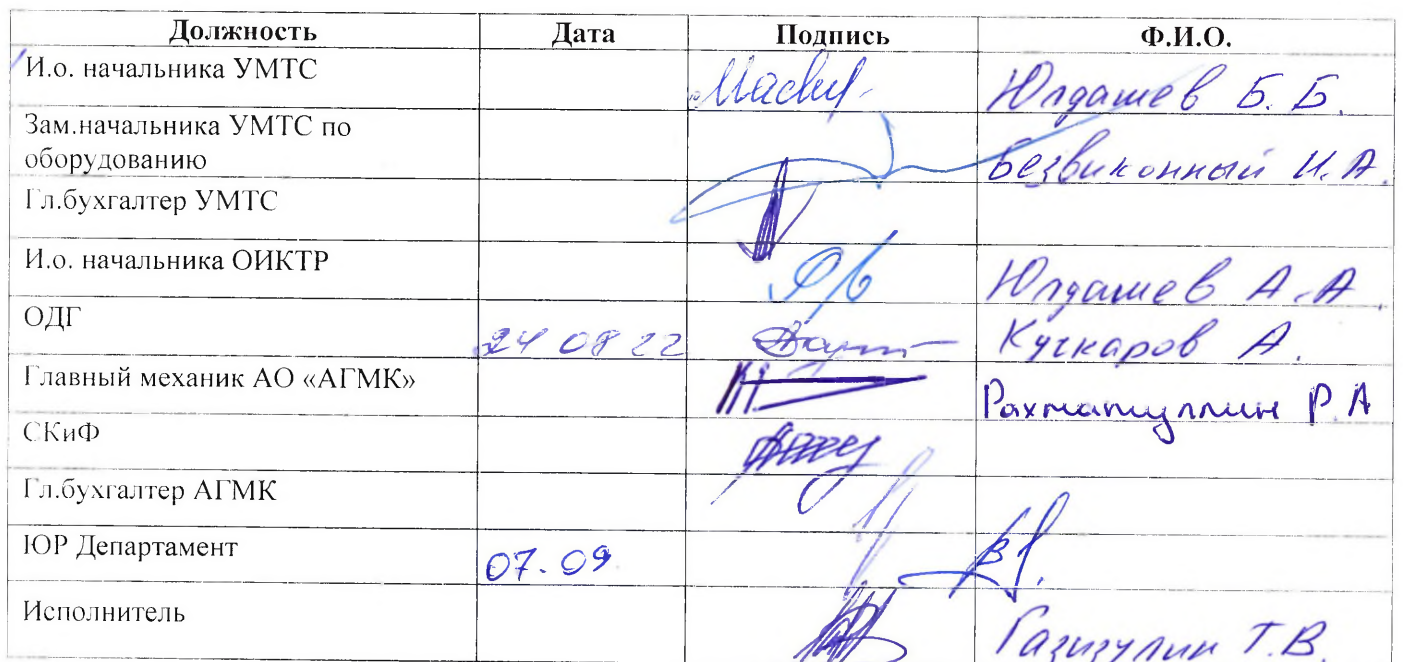 Должность Дата Подпись Ф.И.О.
И.о. начальника УМТС Юлдашев Б. Б.
Зам.начальника УМТС по
оборудованию Безвиконный И.А.
Гл.бухгалтер УМТС
И.о. начальника ОИКТР Юлдашев А.А.
ОДГ 24 08 22 Кучкаров А.
Главный механик АО «АГМК» Рахматуллин Р А
СКиФ
Гл.бухгалтер АГМК
ЮР Департамент 07.09
Исполнитель Газизулин Т.В.